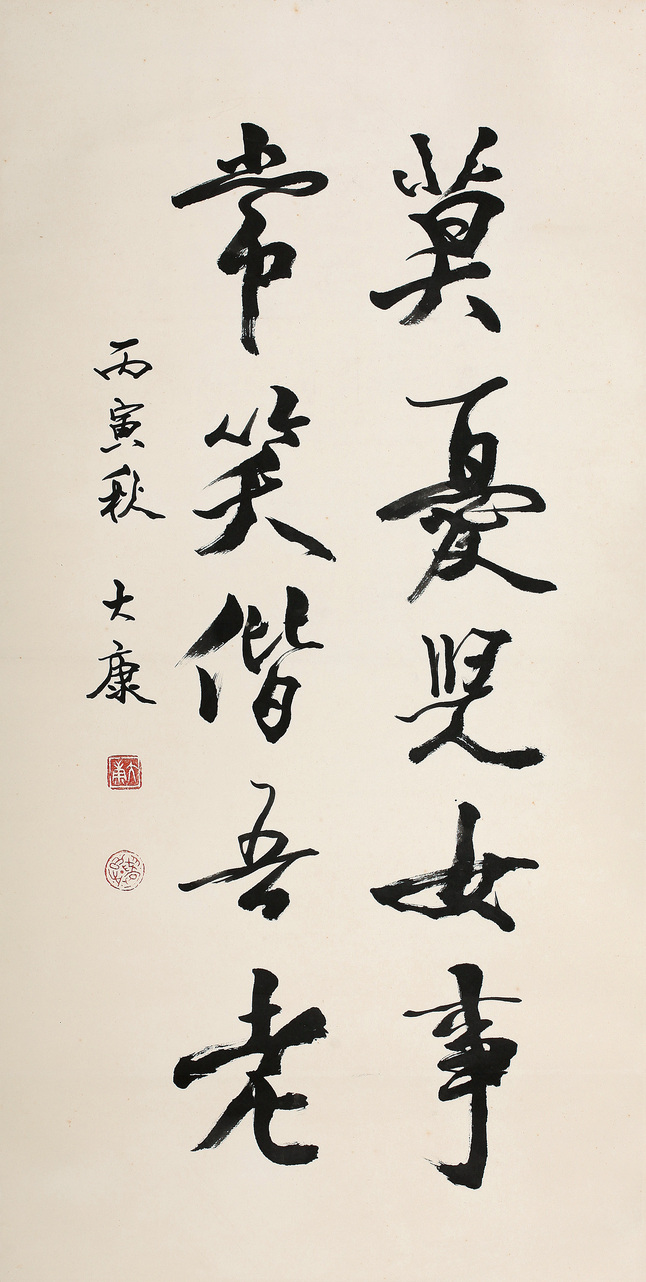 莫憂兒女事
常笑偕吾老
丙寅秋 大康
大康